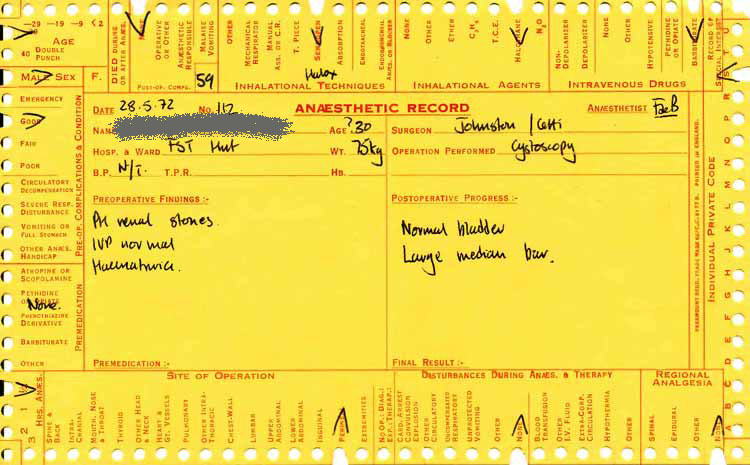 -29 -19 -9 <2
Age
40 Double Punch
Male Sex F.
Died During or After Anæs.
None
Operative or Other
Anæsthetic Responsible
Malaise Vomiting
Other
Post-op. Comps.
59
Mechanical Respirator
Manual Ass. or C.R.
T. Piece
Absorption
Endotracheal
Endobronchial Anæs. or Blocker
Halox
Inhalational Techniques
None
Other
Ether
C₃H₆
T.C.E.
Halothane
N₂O
Inhalational Agents
Non-Depolarizer
Depolarizer
None
Other
Hypotensive
Pethidine or Opiate
Barbiturate
Intravenous Drugs
Record of Special Interest
Emergency
Good
Fair
Poor
Circulatory Decompensation
Severe Resp. Disturbance
Vomiting or Full Stomach
Other Anæs. Handicap
Pre-op. Complications & Condition
Atropine or Scopolamine
Pethidine or Opiate
None.
Phenothiazine Derivative
Barbiturate
Other
Premedication
Date 28.5.72 No. 112 ANÆSTHETIC RECORD Anæsthetist
Name Age ?30 Surgeon Johnston / Cetti
Hosp. & Ward FST Hut Wt. 75kg Operation Performed Cystoscopy
B.P. N/T. T.P.R. Hb.
Preoperative Findings :- Postoperative Progress :-
PH renal stones. Normal bladder
IVP normal Large median bar.
Haematuria.
Premedication :- Final Result :-
Individual Private Code
A B C D E F G H I J K L M N O P R S T U
Printed in England
3 2 1
Hrs. Anæs.
Site of Operation
Spine & Back
Intra-Cranial
Mouth, Nose & Throat
Thyroid
Other Head & Neck
Heart & Gt. Vessels
Pulmonary
Other Intra-Thoracic
Chest-Wall
Lumbar
Upper Abdominal
Lower Abdominal
Inguinal
Extremities
No Op. (Diag.: Ext. Therap.)
Disturbances During Anæs. & Therapy
Card. Arrest
Convulsion
Explosion
Other Circulatory
Uncompensated Respiratory
Unprotected Vomiting
Other
None
Blood Transfusion
Other I.V. Fluid
Extra-Corp. Circulation
Hypothermia
Other
Regional Analgesia
Spinal
Epidural
Other